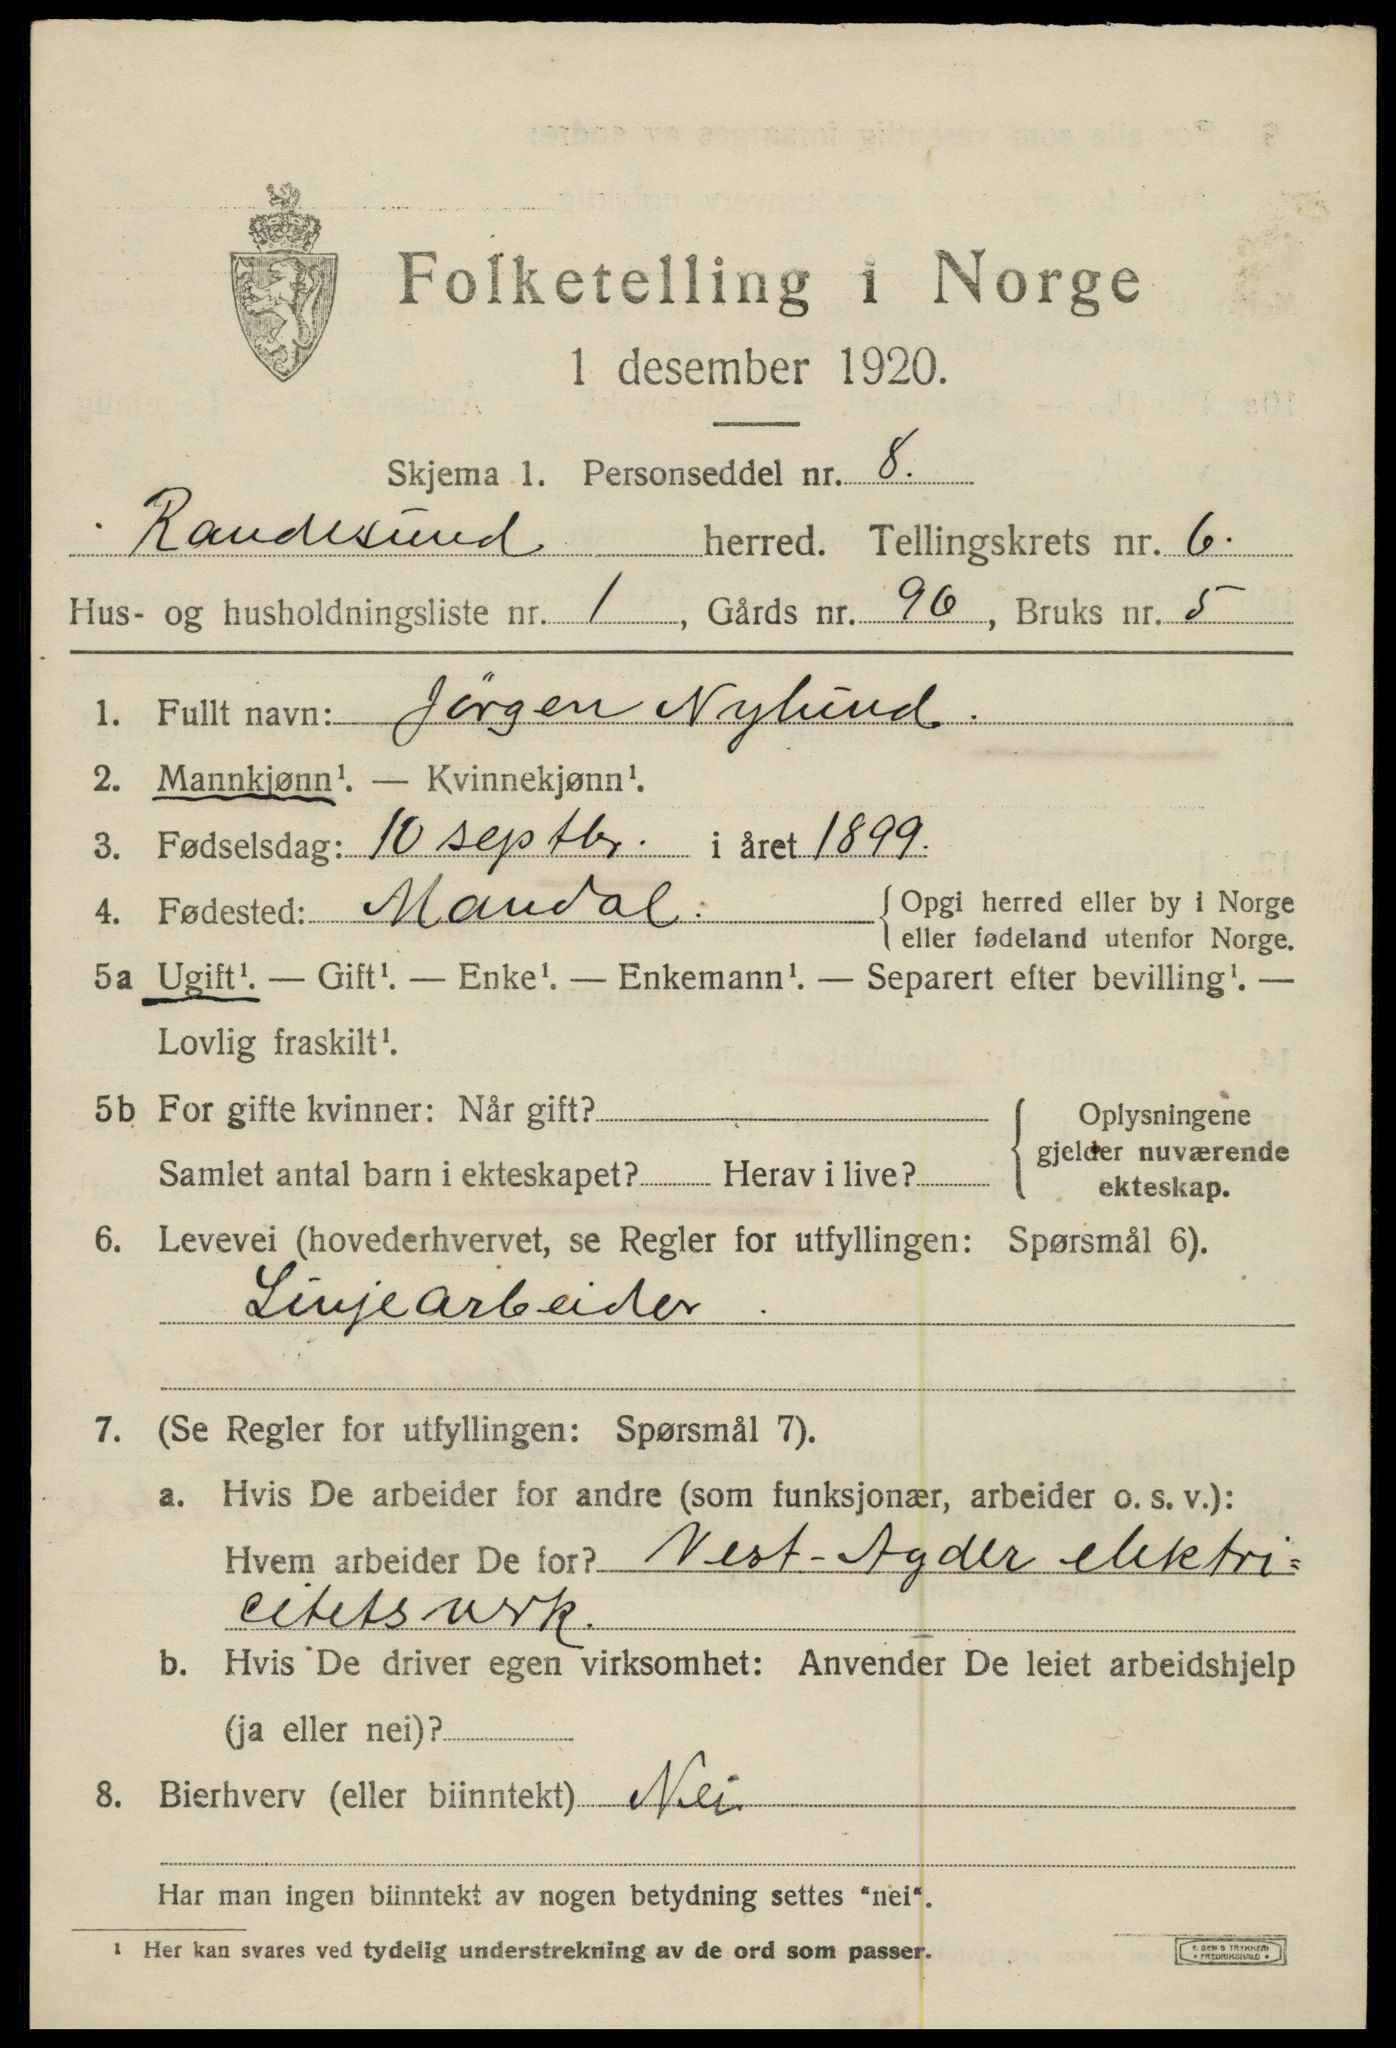 Folketelling i Norge
1 desember 1920.
Skjema 1. Personseddel nr. 8.
Randesund herred. Tellingskrets nr. 6.
Hus- og husholdningsliste nr. 1, Gårds nr. 96, Bruks nr. 5
1. Fullt navn: Jörgen Nylund.
2. Mannkjønn¹. — Kvinnekjønn¹.
3. Fødselsdag: 10 septbr. i året 1899.
4. Fødested: Mandal. {Opgi herred eller by i Norge
eller fødeland utenfor Norge.
5a Ugift¹. — Gift¹. — Enke¹. — Enkemann¹. — Separert efter bevilling¹. —
Lovlig fraskilt¹.
5b For gifte kvinner: Når gift? { Oplysningene
gjelder nuværende
Samlet antal barn i ekteskapet? Herav i live? ekteskap.
6. Levevei (hovederhvervet, se Regler for utfyllingen: Spørsmål 6).
Linjearbeider.
7. (Se Regler for utfyllingen: Spørsmål 7).
a. Hvis De arbeider for andre (som funksjonær, arbeider o. s. v.):
Hvem arbeider De for? Vest-Agder elektri=
citetsverk.
b. Hvis De driver egen virksomhet: Anvender De leiet arbeidshjelp
(ja eller nei)?
8. Bierhverv (eller biinntekt) Nei
Har man ingen biinntekt av nogen betydning settes "nei".
¹ Her kan svares ved tydelig understrekning av de ord som passer.
E. SEM'S TRYKKERI
• FREDRIKSHALD •